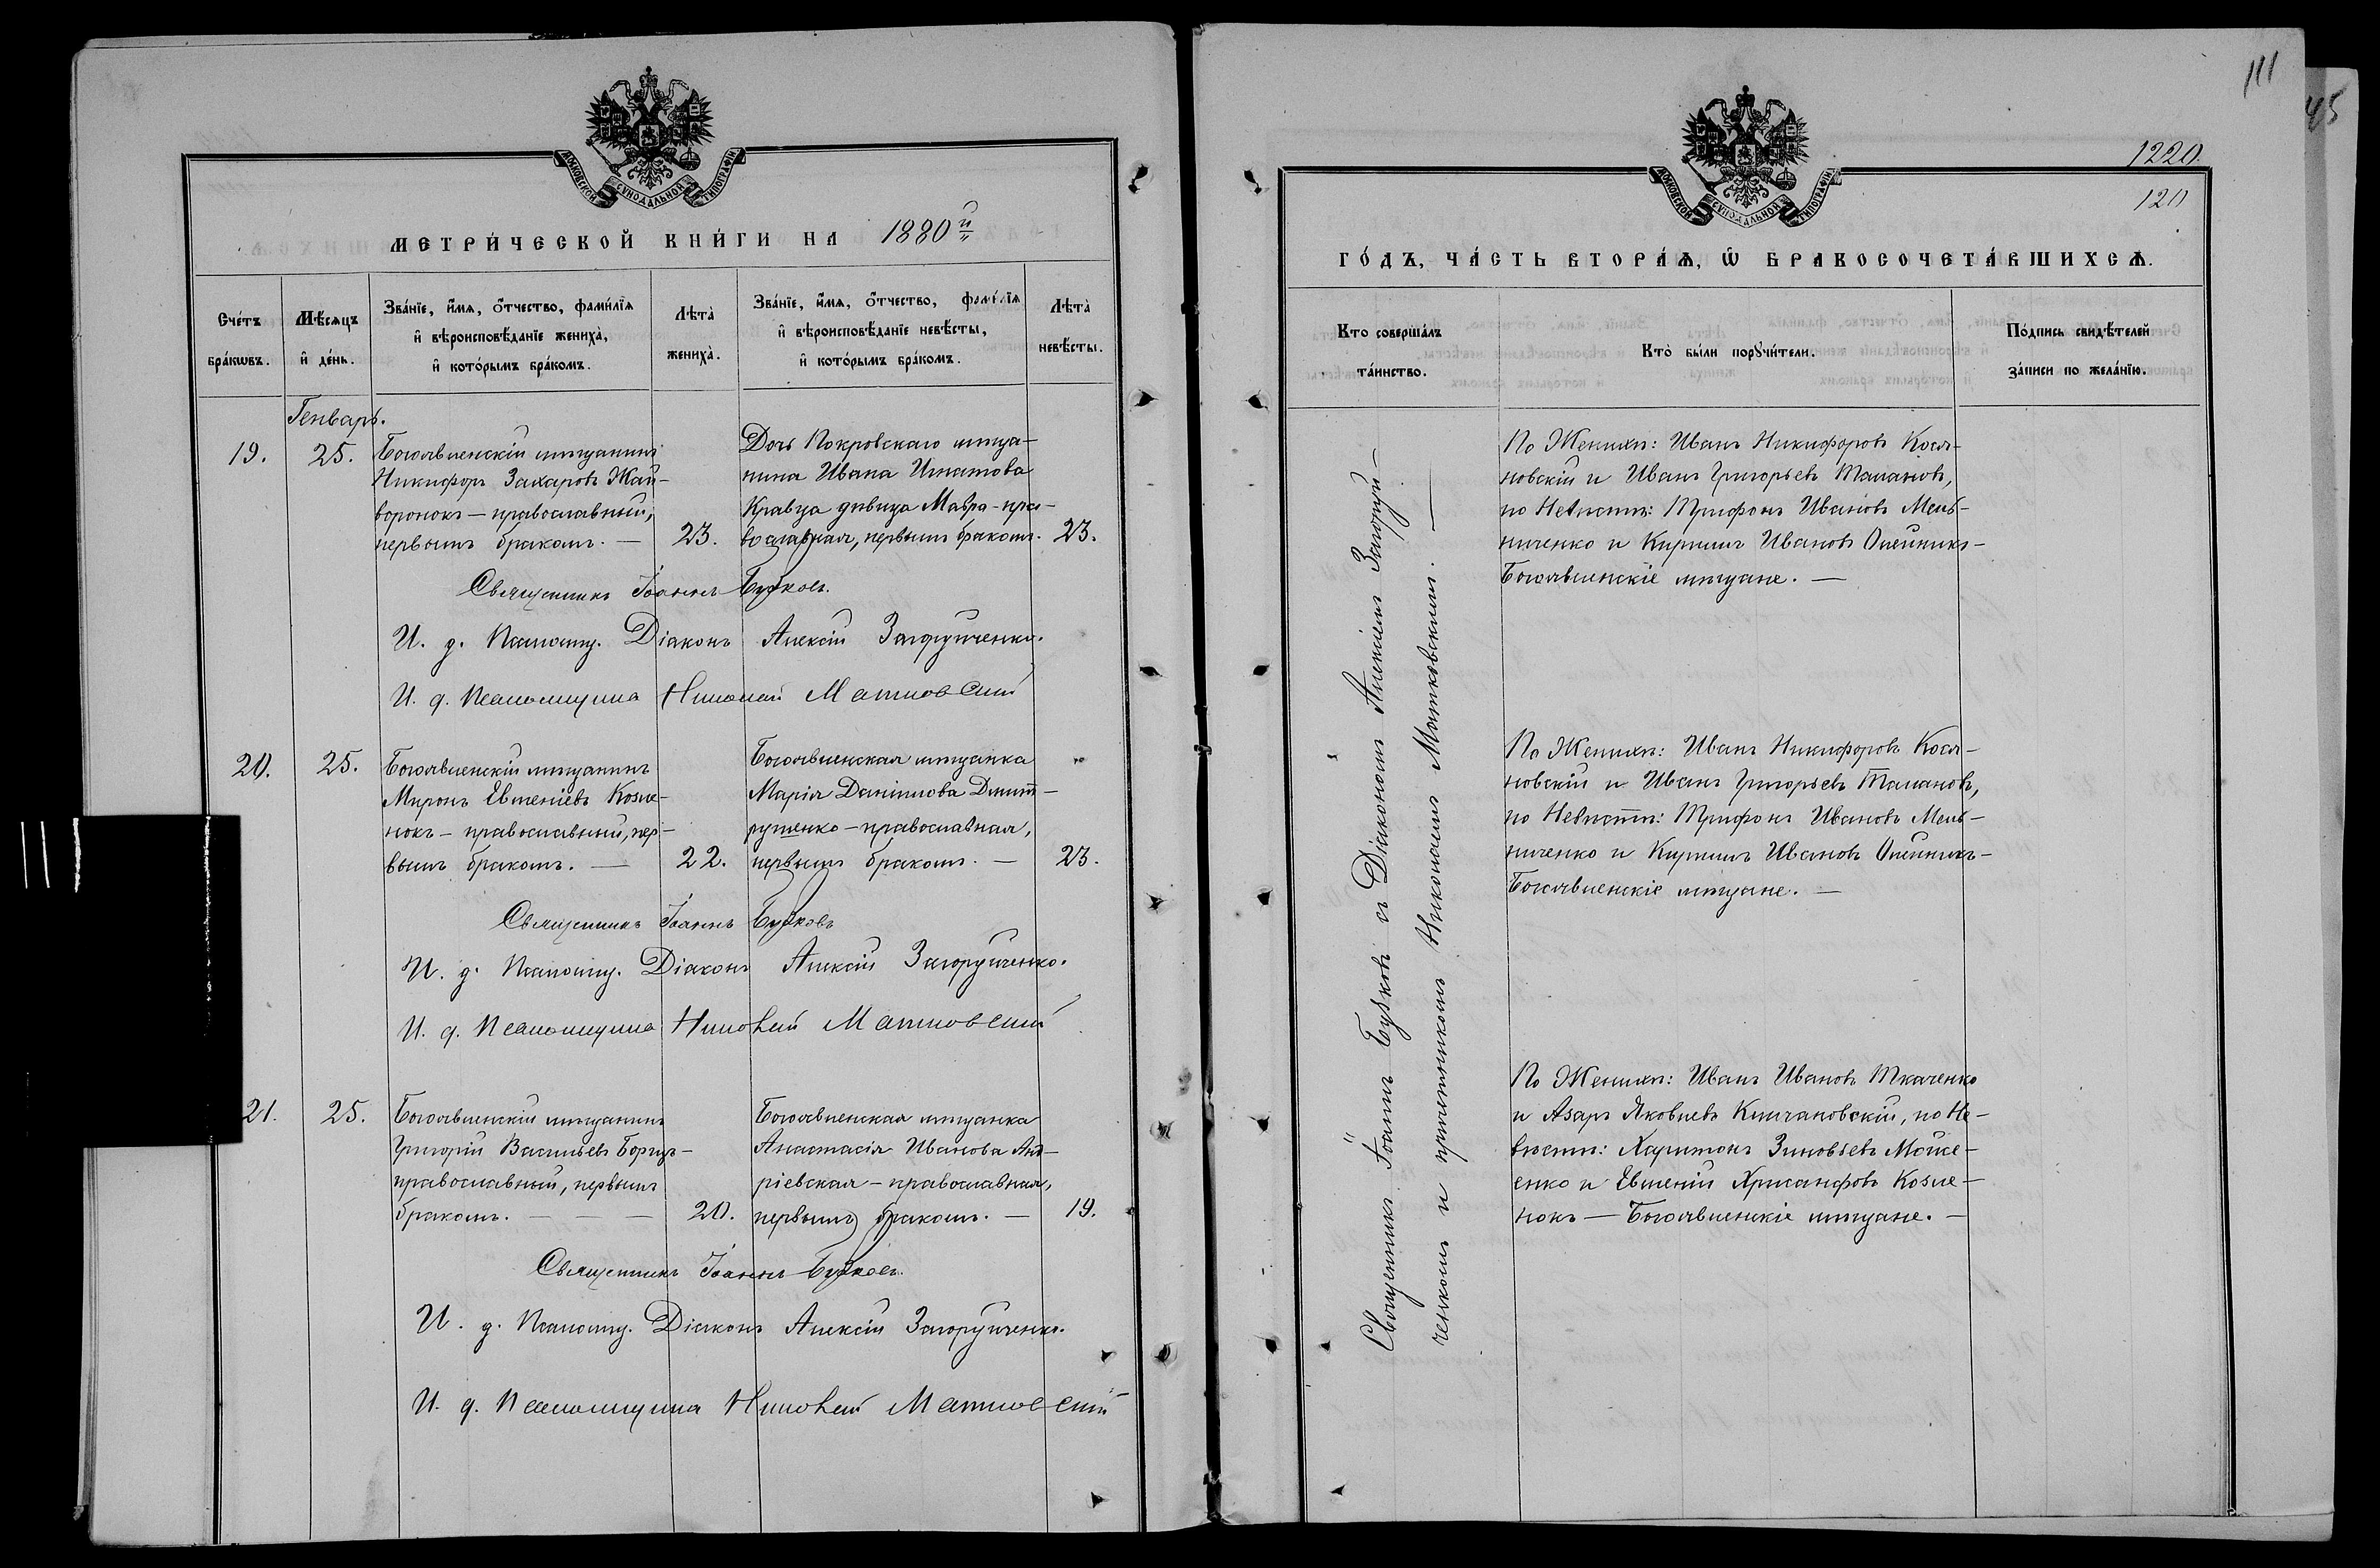 МОСКОВСКОЙ СѴНОДАЛЬНОЙ ТИПОГРАФІИ
МЕТРИ́ЧЕСКОЙ КНИ́ГИ НА 1880й
Сче́тъ бра́кѡвъ.
Мѣ́сяцъ и҆ де́нь.
Зва́нїе, и҆́мѧ, ѻ҆́тчество, фами́лїѧ
и҆ вѣроисповѣ́данїе жениха̀,
и҆ кото́рымъ бра́комъ.
Лѣта̀ жениха̀.
Зва́нїе, и҆́мѧ, ѻ҆́тчество, фами́лїѧ
и҆ вѣроисповѣ́данїе невѣ́сты,
и҆ кото́рымъ бра́комъ.
Лѣта̀ невѣ́сты.
Генварь.
19. 25.
Богоявленскій мѣщанинъ
Никифоръ Захаровъ Жай-
воронокъ – православный,
первымъ бракомъ. — 23.
Дочь Покровскаго мѣща-
нина Ивана Игнатова
Кравца дѣвица Мавра - пра-
вославная, первымъ бракомъ. 23.
Священникъ Іоаннъ Бужковъ.
И. д. Псаломщ. Діаконъ Алексій Загоруйченко.
И. д. Псаломщика Николай Матковский
20. 25.
Богоявленскій мѣщанинъ
Миронъ Евгеніевъ Козле-
нокъ – православный, пер-
вымъ бракомъ. — 22.
Богоявленская мѣщанка
Марія Даніилова Дмит-
рушенко – православная,
первымъ бракомъ. — 23.
Священникъ Іоаннъ Бужковъ
И. д. Псаломщ. Діаконъ Алексій Загоруйченко.
И. д. Псаломщика Николай Матковский
21. 25.
Богоявленскій мѣщанинъ
Григорій Васильевъ Борщъ –
православный, первымъ
бракомъ. — — — 20.
Богоявленская мѣщанка
Анастасія Иванова Анд-
ріевская – православная,
первымъ бракомъ. — 19.
Священникъ Іоаннъ Бужковъ.
И. д. Псаломщ. Діаконъ Алексій Загоруйченко.
И. д. Псаломщика Николай Матковский
111
45
1220.
120
МОСКОВСКОЙ СѴНОДАЛЬНОЙ ТИПОГРАФІИ
ГО́ДЪ, ЧА́СТЬ ВТОРА́Ѧ, Ѡ҆ БРАКОСОЧЕТА́ВШИХСѦ.
Кто̀ соверша́лъ та́инство.
Кто̀ бы́ли порꙋчи́тели.
По́дпись свидѣ́телей
за́писи по жела́нїю.
Священникъ Іоаннъ Бужковъ съ Діакономъ Алексіемъ Загоруй-
ченкомъ и причетникомъ Николаемъ Матковскимъ. —
По Женихѣ: Иванъ Никифоровъ Кося-
новскій и Иванъ Григорьевъ Талановъ,
по Невѣстѣ: Трифонъ Ивановъ Мель-
ниченко и Кириллъ Ивановъ Олейникъ –
Богоявленскіе мѣщане. —
По Женихѣ: Иванъ Никифоровъ Кося-
новскій и Иванъ Григорьевъ Талановъ,
по Невѣстѣ: Трифонъ Ивановъ Мель-
ниченко и Кириллъ Ивановъ Олейникъ –
Богоявленскіе мѣщане. —
По Женихѣ: Иванъ Ивановъ Ткаченко
и Азаръ Яковлевъ Климановскій, по Не-
вѣстѣ: Харитонъ Зиновьевъ Мойсе-
енко и Евгеній Хрисанфовъ Козле-
нокъ — Богоявленскіе мѣщане. —